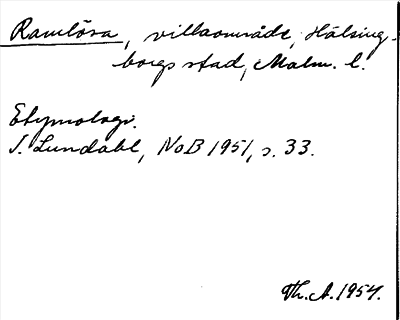 Ramlösa, villaområde, Hälsing-
borgs stad, Malm. l.
Etymologi.
I. Lundahl, NoB 1951, s. 33.
Th. A. 1954.